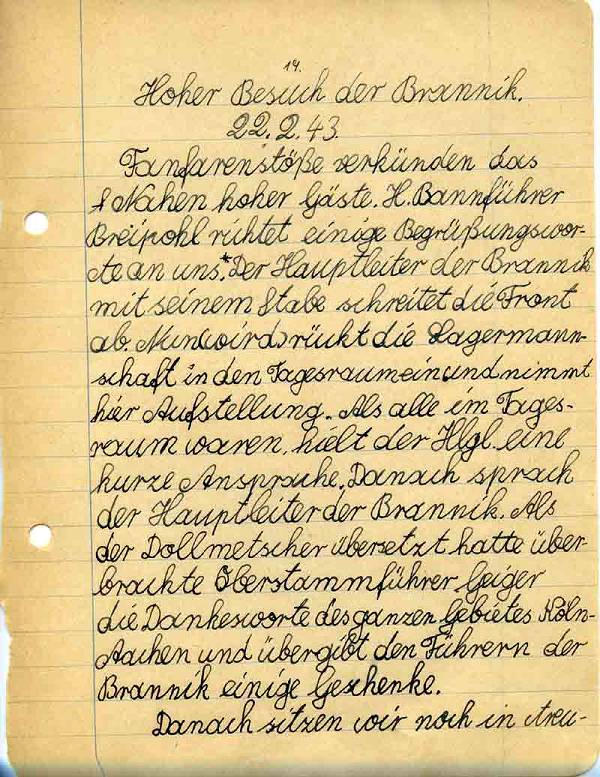 14.
Hoher Besuch der Brannik.
22. 2. 43.
Fanfarenstöße verkünden das
Nahen hoher Gäste. H. Bannführer
Breipohl richtet einige Begrüßungswor-
te an uns.* Der Hauptleiter der Brannik
mit seinem Stabe schreitet die Front
ab. Nun (wird) rückt die Lagermann-
schaft in den Tagesraum ein und nimmt
hier Aufstellung. Als alle im Tages-
raum waren, hielt der Hlgl. eine
kurze Ansprache. Danach sprach
der Hauptleiter der Brannik. Als
der Dollmetscher übersetzt hatte über-
brachte Oberstammführer Geiger
die Dankesworte des ganzen Gebietes Köln-
Aachen und übergibt den Führern der
Brannik einige Geschenke.
Danach sitzen wir noch in treu-